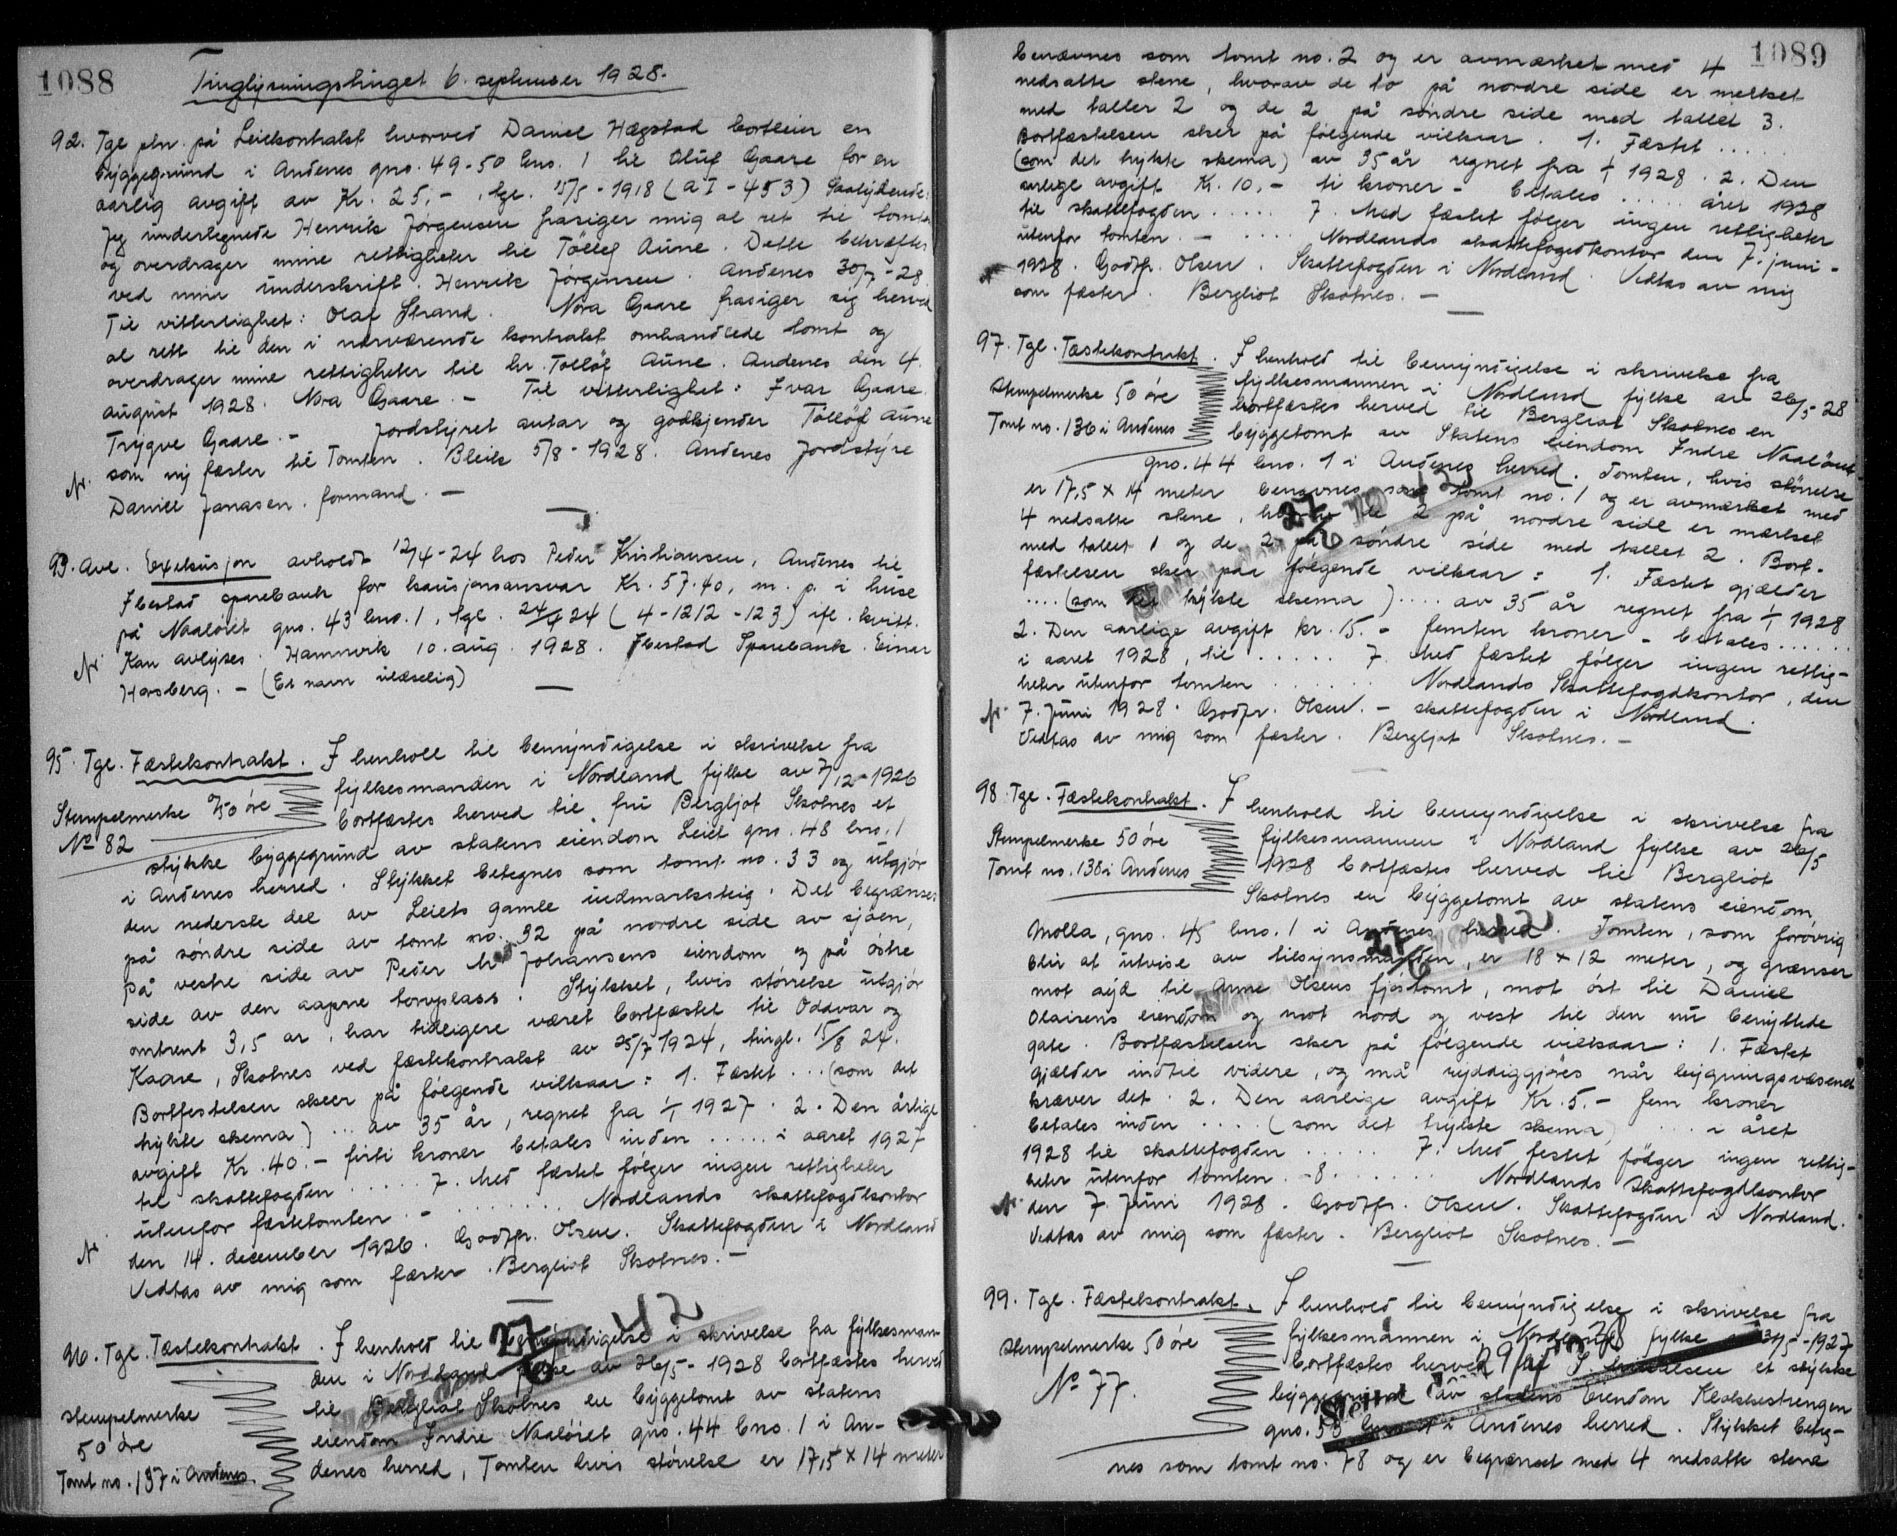 1088
Tinglysningstinget 6. september 1928.
92. Tgl. ptn. på Leiekontrakt hvorved Daniel Hægstad bortleier en
byggegrund i Andenes gno. 49-50 bno. 1 til Oluf Gaare for en
aarlig avgift av Kr. 25,- , tgl. 15/5 - 1918 (a I - 453) Saalydende:
Jeg undertegnede Henrik Jørgensen frasiger mig al ret til tomten
og overdrager mine rettigheter til Tøllef Aune. Dette bekræftes
ved min underskrift. Henrik Jørgensen. Andenes 30/7 - 28.
Til vitterlighet: Olaf Strand. Nora Gaare frasiger sig herved
al rett til den i nærværende kontrakt omhandlede tomt og
overdrager mine rettigheter til hr. Tolløf Aune. Andenes den 4.
august 1928. Nora Gaare. - Til vitterlighet: Ivar Gaare.
Trygve Gaare. - Jordstyret antar og godkjender Tølløf Aune
som ny fæster til Tomten. Bleik 5/8 - 1928. Andenes Jordstyre
Daniel Jonasen. formand. -
93. Avl. Exekusjon avholdt 12/4 - 24 hos Peder Kristiansen, Andenes til
Ibestad sparebank for kausjonsansvar Kr. 57.40, m. p. i huse
på Naaløiet gno. 43 bno. 1, tgl. 24/4 24 (4 - 1212 - 123) ifl. kvitt.
Kan avlyses. Hamnvik 10. aug. 1928. Ibestad Sparebank. Einar
Horsberg. - (Et navn ulæselig)
95. Tgl. Fæstekontrakt. I henholl til bemyndigelse i skrivelse fra
fylkesmanden i Nordland fylke av 7/12 - 1926
Stempelmerke 50 øre
bortfæstes herved til fru Bergljot Skotnes et
No 82
stykke byggegrund av statens eiendom Leiet gno. 48 bno. 1
i Andenes herred. Stykket betegnes som tomt no. 33 og utgjør
den nederste del av Leiets gamle utmarksteig. Det begrænses
på søndre side av tomt no. 32 på nordre side av sjøen,
På vestre side av Peder M. Johansens eiendom og på østre
side av den aapne torvplass. Stykket, hvis størrelse utgjør
omtrent 3,5 ar, har tidligere været bortfæstet til Oddvar og
Kaare, Skotnes ved fæstekontrakt av 25/7 1924, tingl. 15/8 24.
Bortfestelsen skeer på følgende vilkaar: 1. Fæstet ... (som det
trykte skema) ... av 35 år, regnet fra 1/1 1927. 2. Den årlige
avgift Kr. 40.- firti kroner betales inden ..... i aaret 1927
til skattefogden ..... 7. Med fæstet følger ingen rettigheter
utenfor fæstetomten. - ........ Nordlands skattefogdkontor
den 14. december 1926. Godtfr. Olsen. Skattefogden i Nordland
Vedtas av mig som fæster. Bergliot Skotnes. -
96. Tgl. Fæstekontrakt. I henhold til bemyndigelse i skrivelse fra fylkesman-
den i Nordland fylke av 26/5 - 1928 bortfæstes herved
til Bergliot Skotnes en byggetomt av statens
stempelmerke
eiendom Indre Naaløiet gno. 44 bno. 1 i An-
50 øre
denes herred, Tomten hvis størrelse er 17,5 x 14 meter
Tomt no. 137 i Andenes.
27/6 42
1089
benævnes som tomt no. 2 og er avmærket med 4
nedsatte stene, hvorav de to på nordre side er merket
med tallet 2 og de 2 på søndre side med tallet 3.
Bortfæstelsen sker på følgende vilkaar. 1. Fæstet ......
(som det trykte skema) av 35 år regnet fra 1/1 1928. 2. Den
aarlige avgift Kr. 10,- ti kroner - betales ..... året 1928
til skattefogden ..... 7. Med fæstet følger ingen rettigheter
utenfor tomten. - ..... Nordlands skattefogdkontor den 7. juni -
1928. Godtfr. Olsen. Skattefogden i Nordland. Vedtas av mig
som fæster. Bergliot Skotnes. -
97. Tgl. Fæstekontrakt. I henhold til bemyndigelse i skrivelse fra
fylkesmannen i Nordland fylke av 26/5 28
Stempelmerke 50 øre
bortfæstes herved til Bergliot Skotnes en
Tomt no. 136 i Andenes
byggetomt av Statens eiendom Indre Naaløiet
gno. 44 bno. 1 i Andenes herred. Tomten, hvis størrelse
er 17,5 x 14 meter benevnes som tomt no. 1 og er avmærket med
4 nedsatte stene, hvorav de 2 på nordre side er mærket
med tallet 1 og de 2 på søndre side med tallet 2. Bort-
fæstelsen sker paa følgende vilkaar: 1. Fæstet gjælder
.... (som det trykte skema) .... av 35 år regnet fra 1/1 1928
2. Den aarlige avgift kr. 15.- femten kroner - betales ......
i aaret 1928, til ..... 7. Med fæstet følger ingen rettig-
heter utenfor tomten ...... Nordlands Skattefogdkontor, den
7. Juni 1928. Godtfr. Olsen. - skattefogden i Nordland.
Vedtas av mig som fæster. Bergljot Skotnes. -
27/6
98. Tgl. Fæstekontrakt. I henhold til bemyndigelse i skrivelse fra
fylkesmannen i Nordland fylke av 26/5
Stempelmerke 50 øre
1928 bortfæstes herved til Bergliot
Tomt no. 138 i Andenes
Skotnes en byggetomt av statens eiendom,
Molla, gno. 45 bno. 1 i Andenes herred. Tomten, som forøvrig
blir at utvise av tilsynsmanden, er 18 x 12 meter, og grænser
mot syd til Anne Olsens fjøstomt, mot øst til Daniel
Olaisens eiendom og mot nord og vest til den nu benyttede
gate. Bortfæstelsen sker på følgende vilkaar: 1. Fæstet
gjælder indtil videre, og må ryddiggjøres når bygningsvæsenet
kræver det. 2. Den aarlige avgift Kr. 5.- fem kroner
betales inden .... (som det trykte skema) ... i året
1928 til skattefogden ...... 7. Med festet følger ingen rettig-
heter utenfor tomten. - 8. ...... Nordlands Skattefogdkontor
den 7. Juni 1928. Godtfr. Olsen. Skattefogden i Nordland.
Vedtas av mig som fæster. Bergliot Skotnes. -
27/6 42
99. Tgl. Fæstekontrakt. I henhold til bemyndigelse i skrivelse fra
fylkesmannen i Nordland fylke 31/5 - 1927
Stempelmerke 50 øre
bortfæstes herved et stykke
No 77.
byggegrund av statens Eiendom Klakkestrengen
gno. bno. 1 i Andenes herred. Stykket beteg-
nes som tomt no. 78 og er begrænset med 4 nedsatte stene